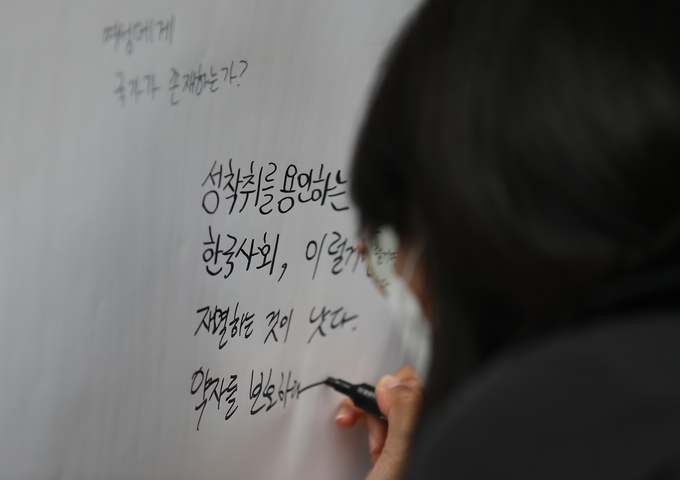 여성에게
국가가 존재하는가?
성착취를 용인하는
한국사회, 이럴거면
자멸하는 것이 낫다.
약자를 보호하